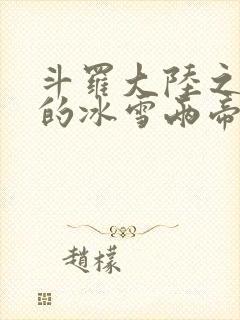 斗羅大陸之
的冰雪兩帝
趙檬